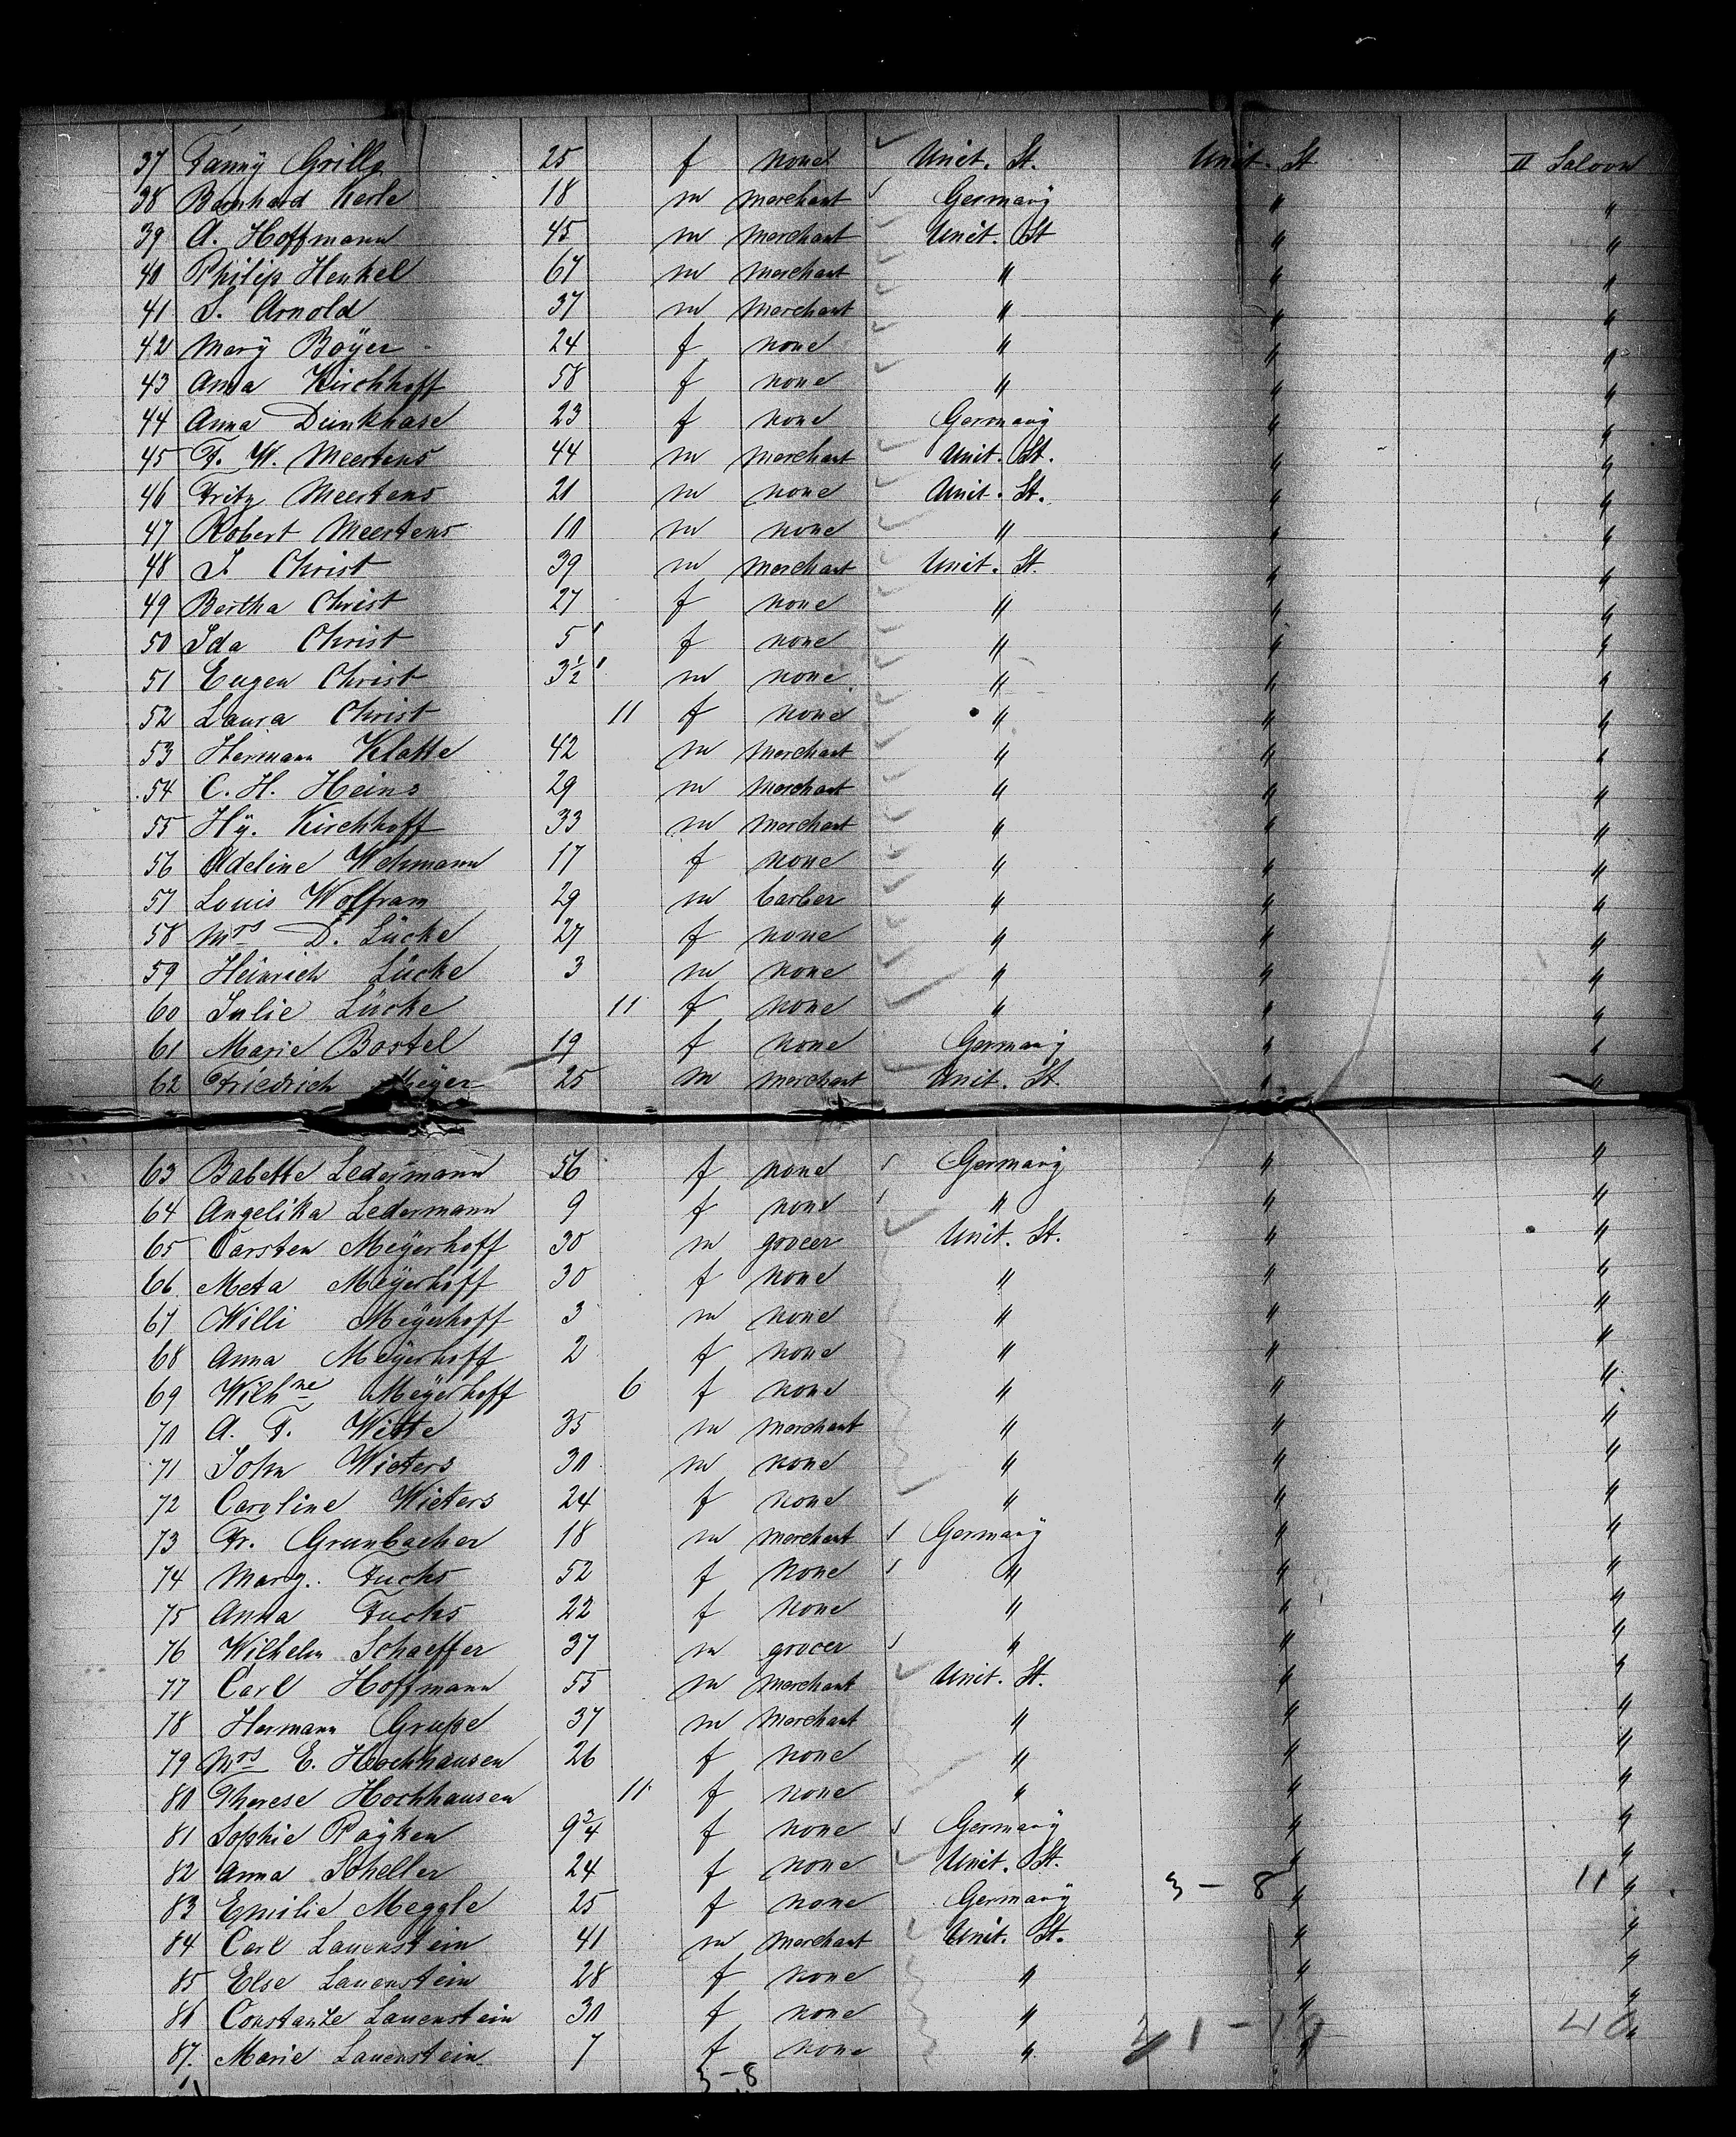 37 Fanny Grille 25 f none Unit. St. Unit. St II Saloon
38 Bernhard Kerle 18 m merchant Germany " "
39 A. Hoffmann 45 m merchant Unit. St " "
40 Philip Henkel 67 m merchant " " "
41 S. Arnold 37 m merchant " " "
42 Mary Böyer 24 f none " " "
43 Anna Kirchhoff 58 f none " " "
44 Anna Dunkhase 23 f none Germany " "
45 F. W. Meertens 44 m merchant Unit. St. " "
46 Fritz Meertens 21 m none Unit. St. " "
47 Robert Meertens 10 m none " " "
48 J. Christ 39 m merchant Unit. St. " "
49 Bertha Christ 27 f none " " "
50 Ida Christ 5 f none " " "
51 Eugen Christ 3½ m none " " "
52 Laura Christ 11 f none " " "
53 Hermann Klatte 42 m merchant " " "
54 C. H. Heins 29 m merchant " " "
55 Hÿ. Kirchhoff 33 m merchant " " "
56 Adeline Wehmann 17 f none " " "
57 Louis Wolfram 29 m barber " " "
58 Mrs D. Lücke 27 f none " " "
59 Heinrich Lücke 3 m none " " "
60 Julie Lücke 11 f none " " "
61 Marie Bostel 19 f none Germany " "
62 Friedrich Meyer 25 m merchant Unit. St. " "
63 Babette Ledermann 56 f none Germany " "
64 Angelika Ledermann 9 f none " " "
65 Carsten Meÿerhoff 30 m grocer Unit. St. " "
66 Meta Meÿerhoff 30 f none " " "
67 Willi Meÿerhoff 3 m none " " "
68 Anna Meÿerhoff 2 f none " " "
69 Wilhne Meÿerhoff 6 f none " " "
70 A. F. Witte 35 m merchant " " "
71 John Wieters 30 m none " " "
72 Caroline Wieters 24 f none " " "
73 Fr. Grunbacher 18 m merchant Germany " "
74 Marg. Fuchs 52 f none " " "
75 Anna Fuchs 22 f none " " "
76 Wilhelm Schaeffer 37 m grocer " " "
77 Carl Hoffmann 55 m merchant Unit. St. " "
78 Hermann Gruße 37 m merchant " " "
79 Mrs E. Hochhausen 26 f none " " "
80 Therese Hochhausen 11 f none " " "
81 Sophie Röyken 9¾ f none Germany " "
82 Anna Scheller 24 f none Unit. St. " "
83 Emilie Meggle 25 f none Germany 3 - 8 " 11 "
84 Carl Lauenstein 41 m merchant Unit. St. " "
85 Else Lauenstein 28 f none " " "
86 Constanze Lauenstein 30 f none " " "
87. Marie Lauenstein 7 f none " " "
3-8